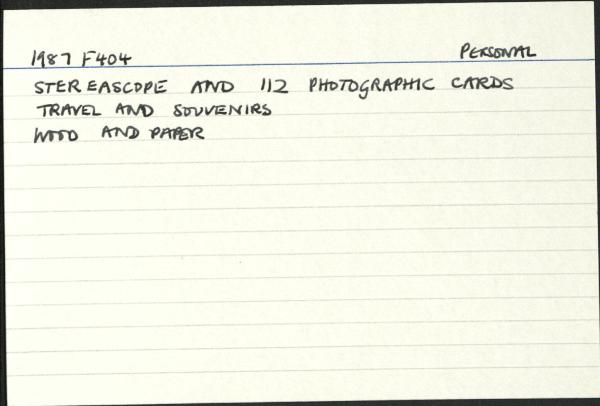 1987 F404 PERSONAL
STEREASCOPE AND 112 PHOTOGRAPHIC CARDS
TRAVEL AND SOUVENIRS
WOOD AND PAPER